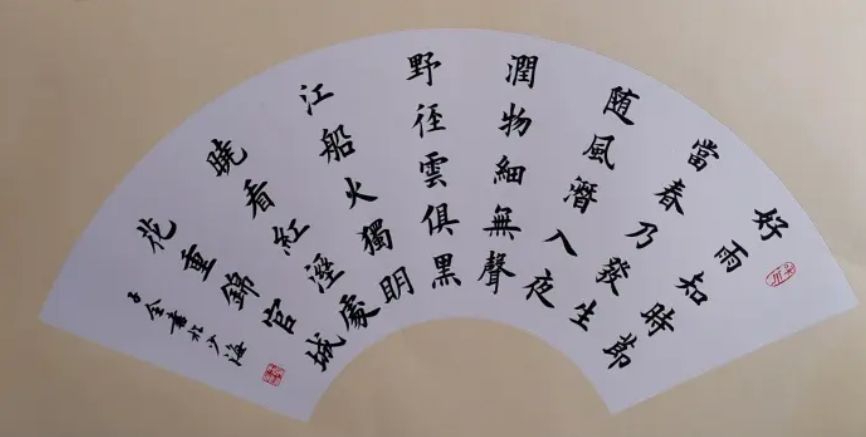 好雨知時節
當春乃發生
随風潛入夜
潤物細無聲
野径雲俱黑
江船火獨明
曉看紅溼處
花重錦官城
子全書於少海